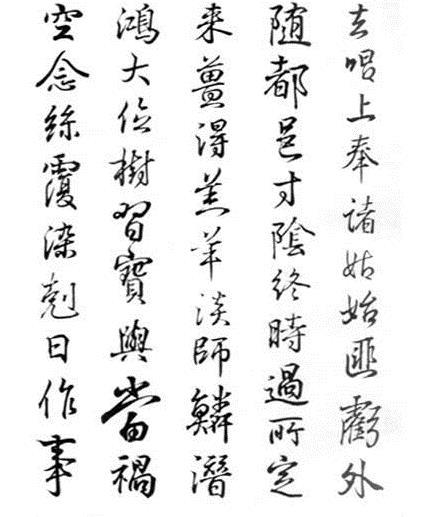 去唱上奉諸姑始匪虧外
随都邑寸陰終時過所定
来薑得羔羊淡師鱗潛
鴻大位樹習寶與當禍
空念絲覆染尅日作事